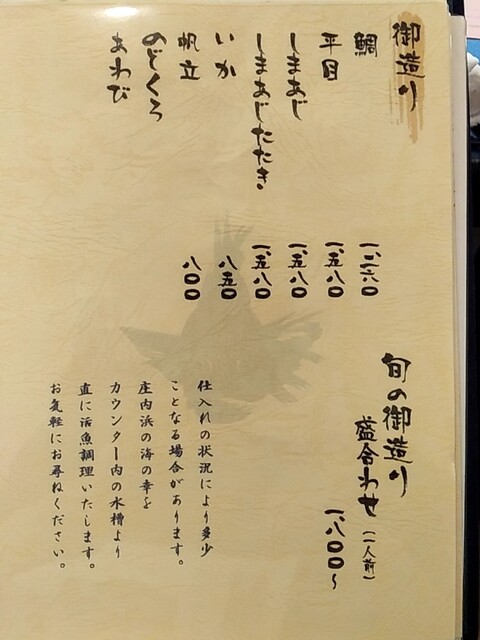 御造り
鯛 一、二六〇
平目 一、五八〇
しまあじ 一、五八〇
しまあじたたき 一、五八〇
いか 八五〇
帆立 八〇〇
のどくろ
あわび
旬の御造り
盛合わせ(一人前)
一、八〇〇~
仕入れの状況により多少
ことなる場合があります。
庄内浜の海の幸を
カウンター内の水槽より
直に活魚調理いたします。
お気軽にお尋ねください。